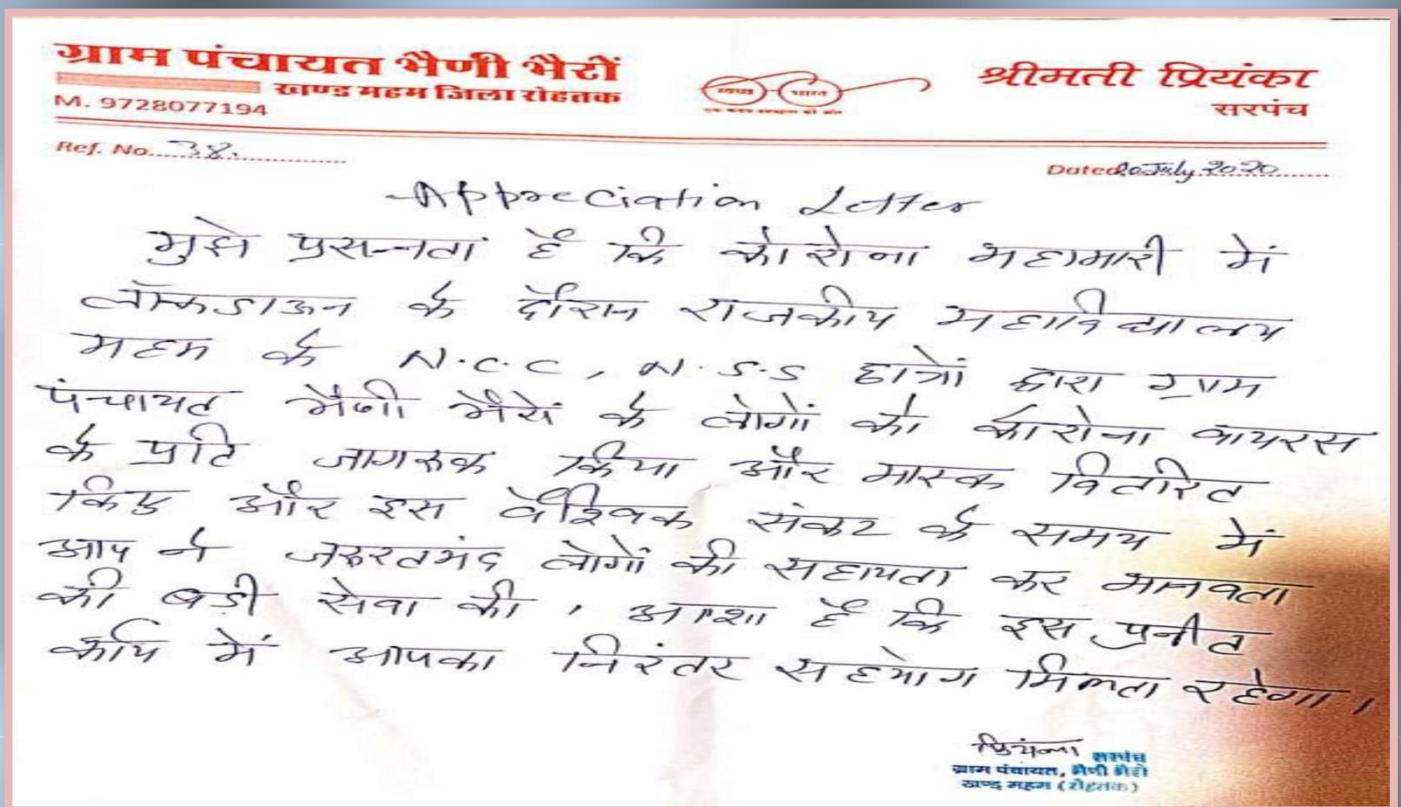 ग्राम पंचायत भैणी भैरों
खण्ड महम जिला रोहतक
M. 9728077194
स्वच्छ भारत
एक कदम स्वच्छता की ओर
श्रीमती प्रियंका
सरपंच
Ref. No. 38.
Dated 20 July 2020
Appreciation Letter
मुझे प्रसन्नता है कि कोरोना महामारी में
लॉकडाऊन के दौरान राजकीय महाविद्यालय
महम के N.C.C, N.S.S छात्रों द्वारा ग्राम
पंचायत भैणी भैरों के लोगों को कोरोना वायरस
के प्रति जागरुक किया और मास्क वितरित
किए और इस वैश्विक संकट के समय में
आप ने जरुरतमंद लोगों की सहायता कर मानवता
की बड़ी सेवा की , आशा है कि इस पुनीत
कार्य में आपका निरंतर सहयोग मिलता रहेगा।
प्रियंका
सरपंच
ग्राम पंचायत, भैणी भैरों
खण्ड महम (रोहतक)